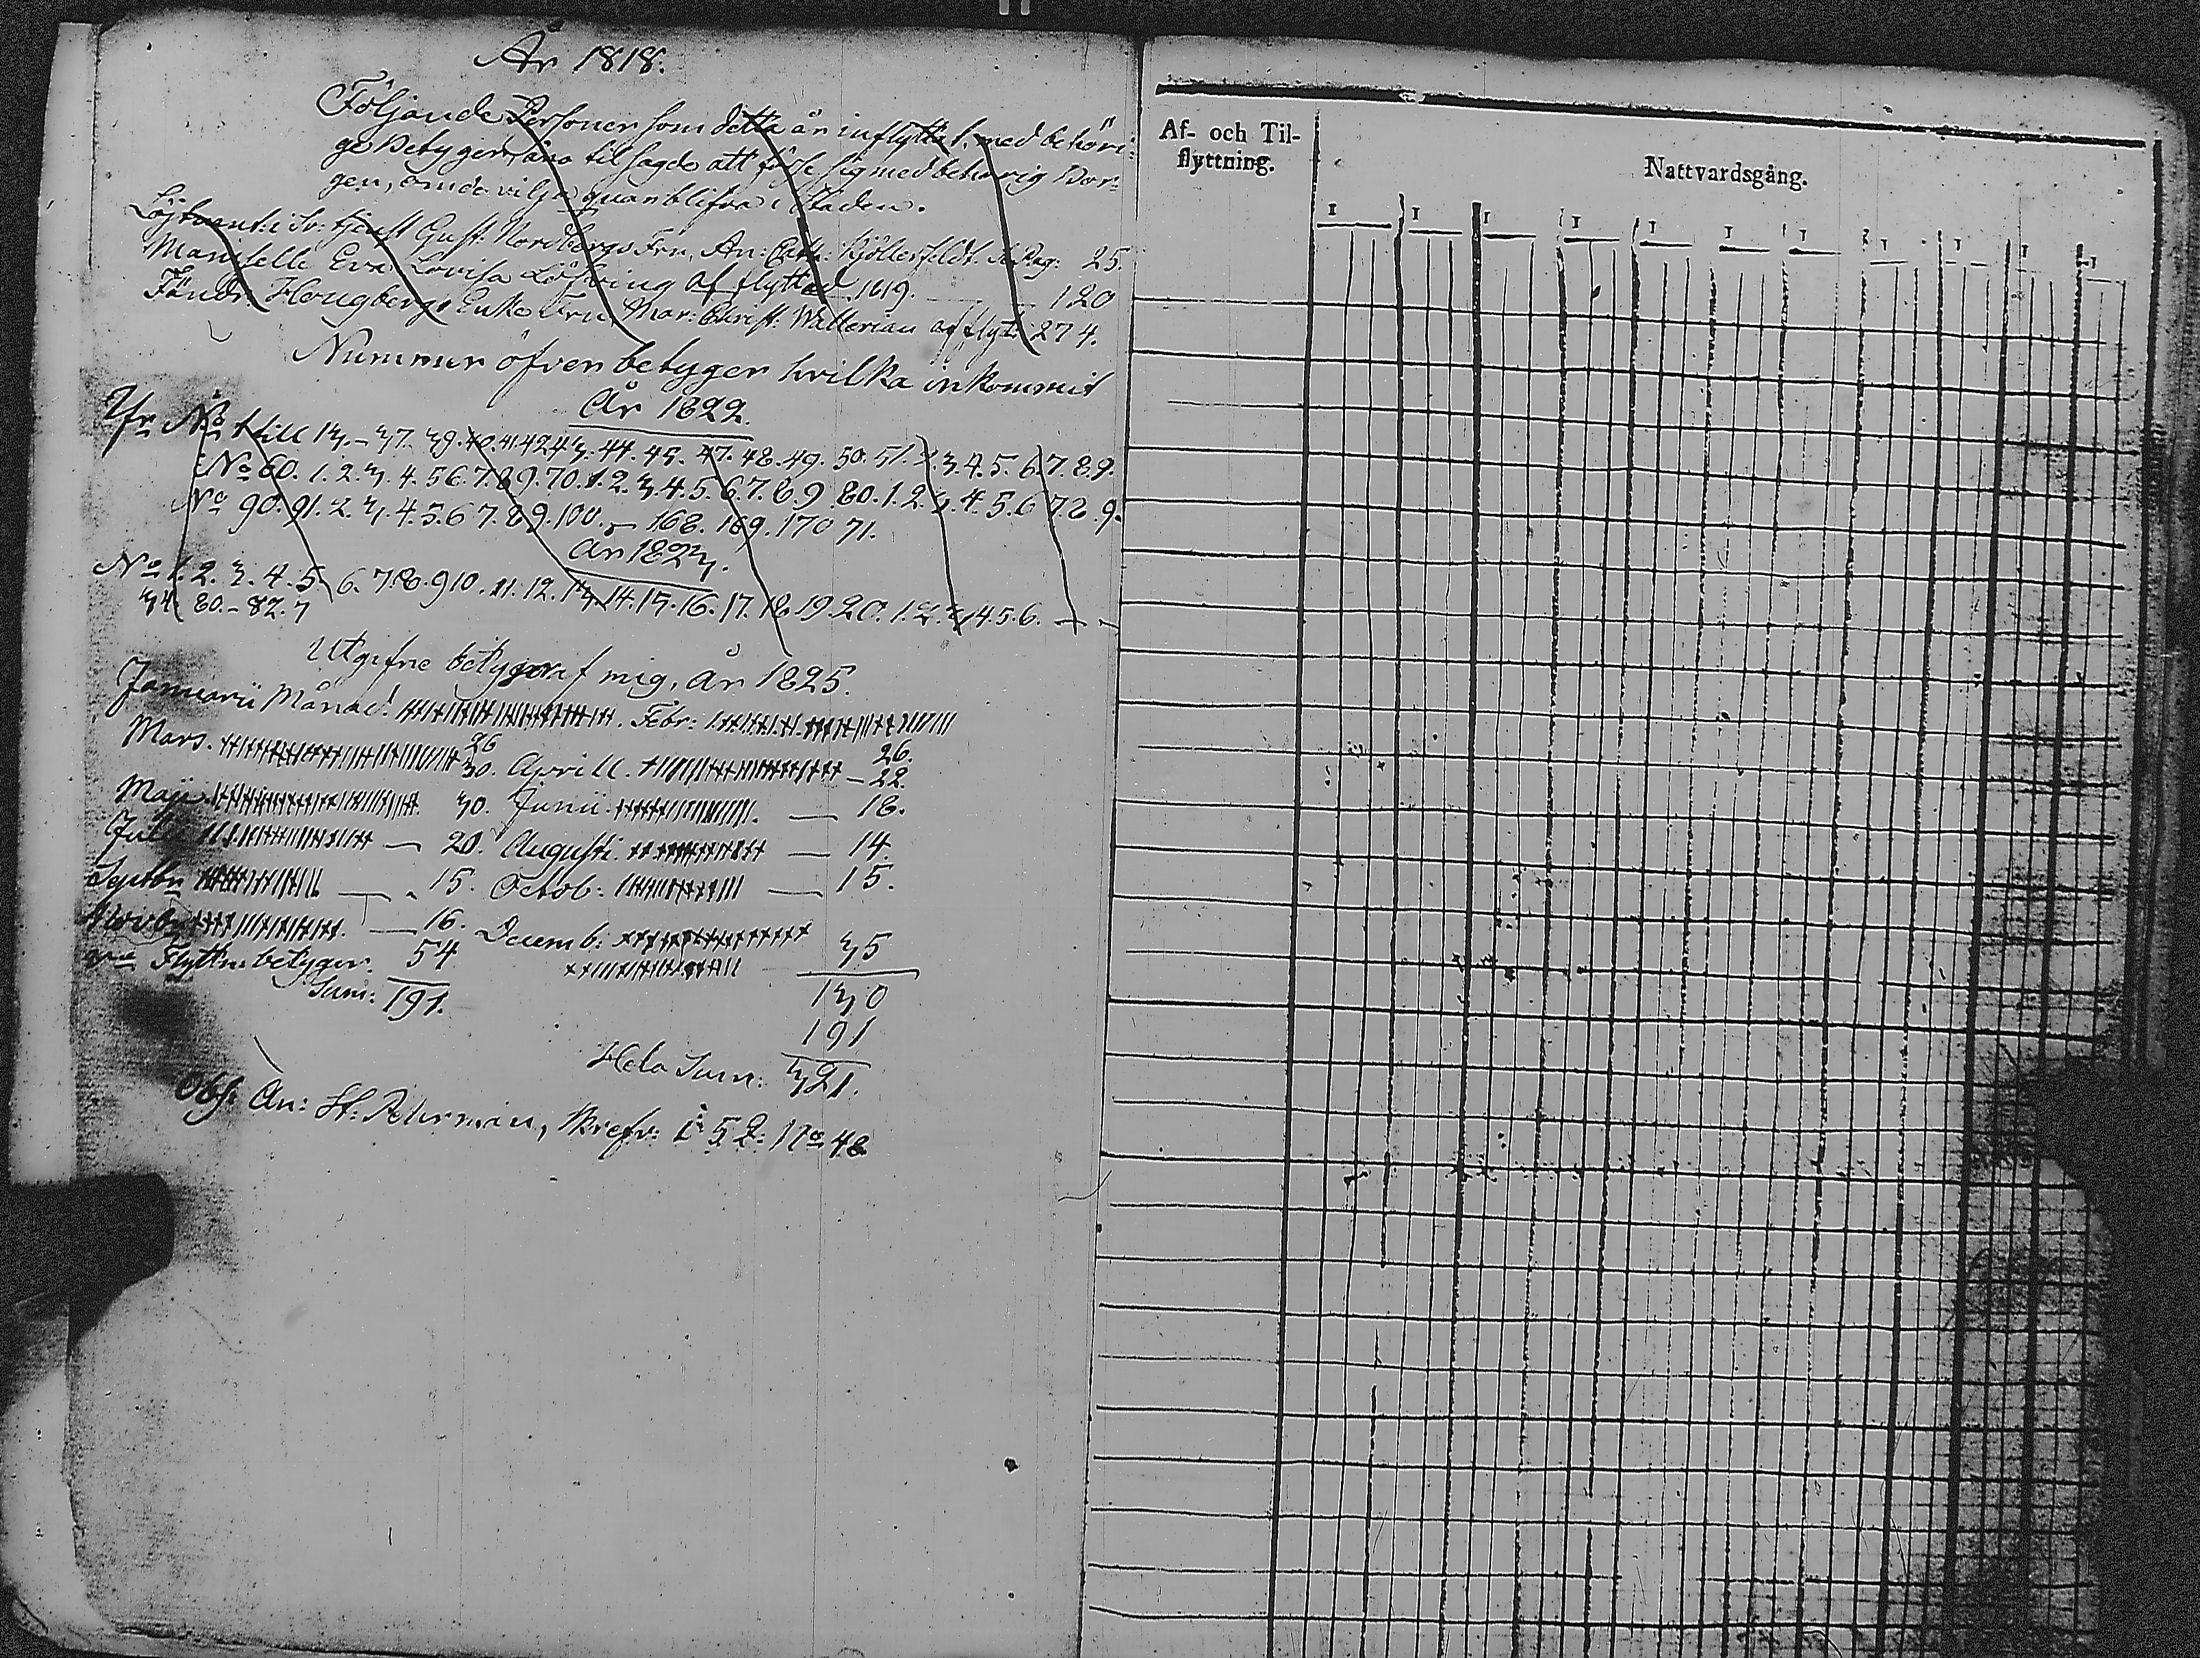 År 1818.
Följande Personer som detta år inflyttat, med behöri-
ge Betyger, äro tilsagde att förse sig med behörig Bor-
gen, om de vilja quarblifva i Staden.
Löjtnant: i Sv: tjenst Gust: Nordbergs Fru, An: Cath: 25.
Mamselle Eva Lovisa Löfving afflyttad 1819. 120
Fändr: Hougbergs Enke Fru, Mar: Christ: Wallerian afflytt: 274.
Nummer öfver betyger hvilka inkommit
År 1822.
No 1 till 13. - 37. 39. 40. 41. 42 43. 44. 45. 47. 48. 49. 50. 51. 2. 3. 4. 5. 6. 7. 8. 9.
No 60. 1. 2. 3. 4. 5 6. 7. 8 9. 70. 1. 2. 3. 4. 5. 6. 7. 8. 9. 80. 1. 2. 3. 4. 5. 6 7 8 9.
No 90. 91. 2. 3. 4. 5. 6 7. 8 9. 100. - 168. 169. 170 71.
År 1823.
No 1. 2. 3. 4. 5. 6. 7. 8. 9 10. 11. 12. 13. 14. 15. 16. 17. 18 19 20. 1. 2. 3 4. 5. 6. -
34. 80. - 82. 7
Utgifne betyger af mig, År 1825.
Januarii Månad. Febr:
26 26.
Mars. 30. Aprill. - 22.
Maji. 30. Junii. - 18.
Juli - 20. Augusti. - 14
Septbr - 15. Octob: - 15.
Novbr - 16. Decemb: 35
Flyttn: betyger. 54
Sum: 191. 130
191
Hela Sum: 321.
Obs: An: St: Peterman, skrefv: i 5 No 48
Af- och Til-
flyttning.
Nattvardsgång.
I I I I I I I I I I I